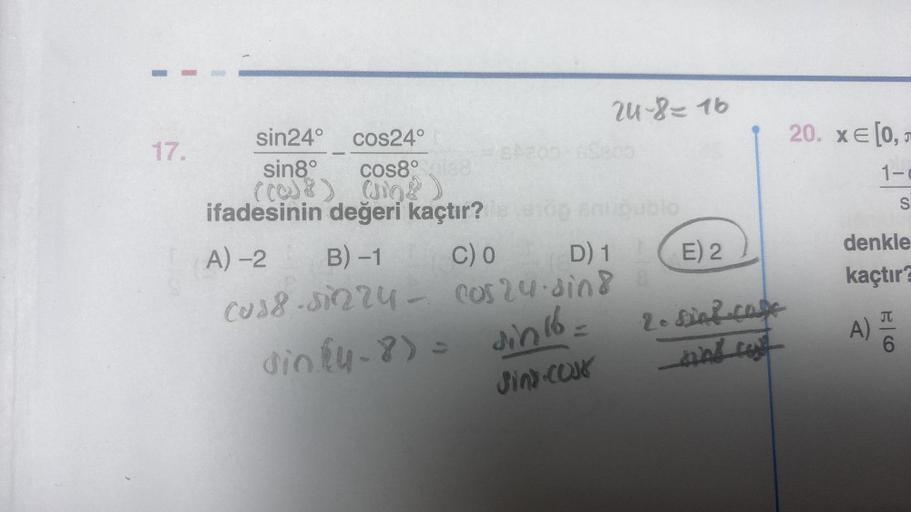 24-8=16
17. sin24°/sin8° – cos24°/cos8°
(cos8) (sin8)
ifadesinin değeri kaçtır?
A) –2 B) –1 C) 0 D) 1 E) 2
cos8.sin24 - cos24.sin8
sin24-8) = sin16/sin8.cos8 = 2.sin8.cos8/sin8 cos8
20. x∈[0,
1–
s
denkle
kaçtır?
A) π/6